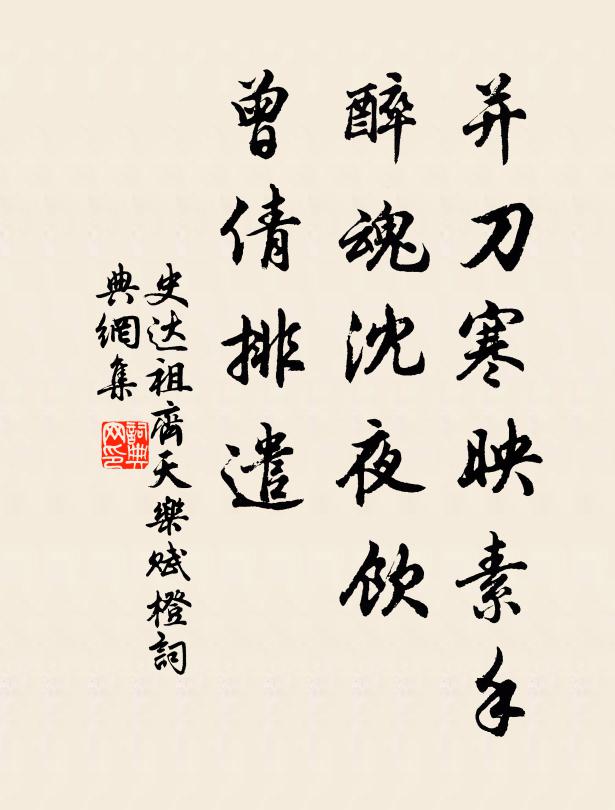 并刀寒映素手
醉魂沈夜飲
曾倩排遣
史达祖齊天樂賦橙詞
典網集
詞典網印